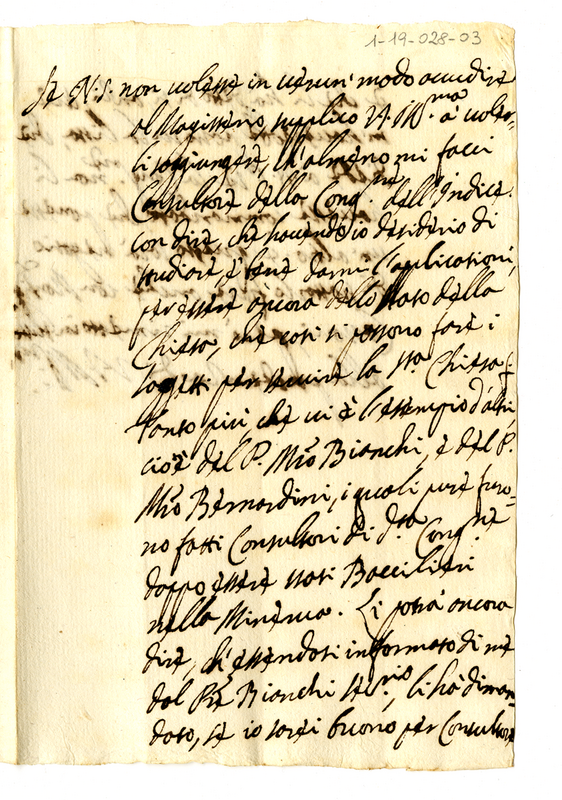 1-19-028-03
Se N.S. non volesse in verun' modo accudire
al Magisterio, supplico V.S. Ill.ma à voler-
li soggiungere, ch'almeno mi facci
Consultore della Cong.ne dell'Indice
con dire, che havendo io desiderio di
studiare, è bene darmi l'applicationi,
per essere ancora dello stato della
Chiesa, che così si possono fare i
soggetti per servire la S.ta Chiesa
tanto più che vi è l'essempio d'altri,
cioè del P. Mro Bianchi, e del P.
Mro Bernardini, i quali pure furo-
no fatti Consultori di d.ta Cong.ne
doppo essere stati Baccilieri
nella Minerva. Li potrà ancora
dire, ch'essendosi informato di me
dal Pre Bianchi Se.rio, li hà diman-
dato, se io sarei buono per Consultore